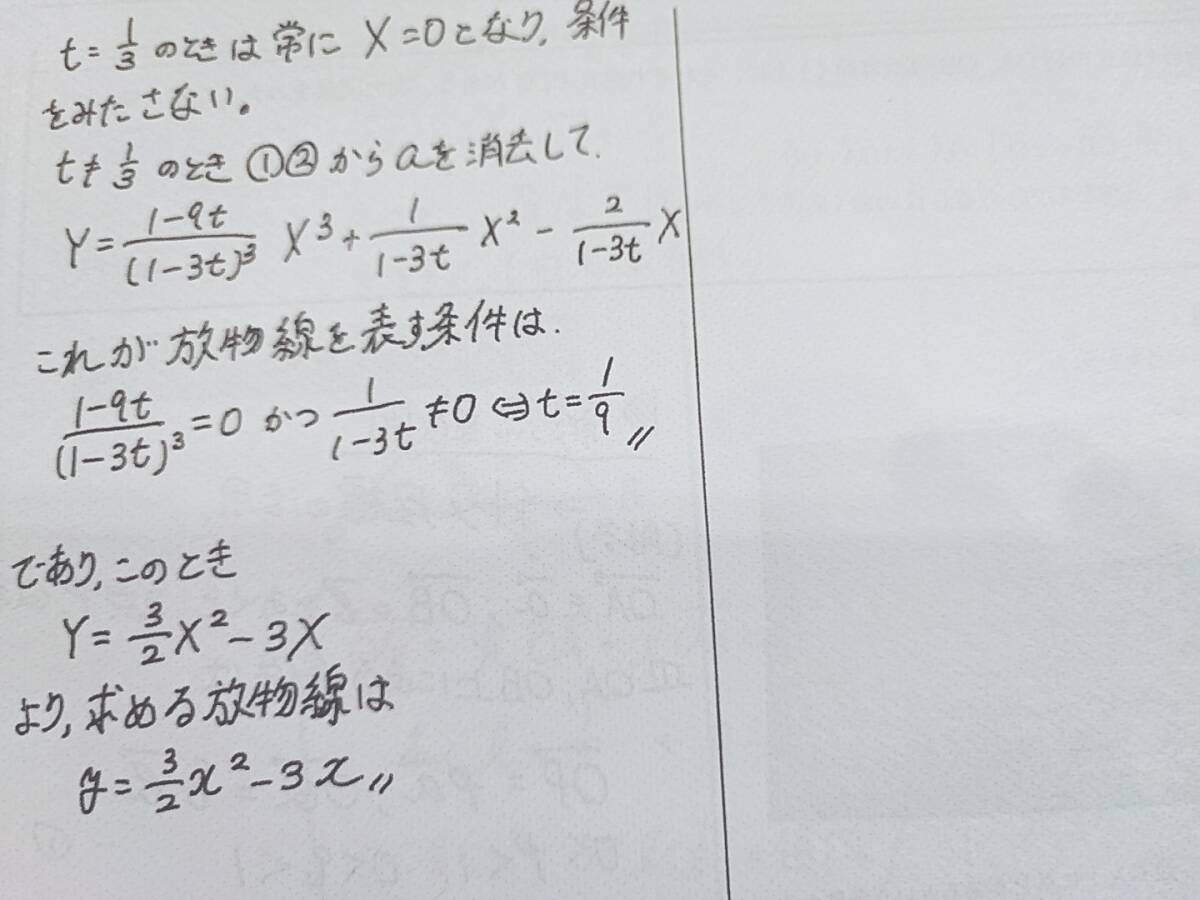 t=1/3 のときは常に X=0となり, 条件
をみたさない。
t≠1/3 のとき ①②からaを消去して.
Y=(1-9t)/(1-3t)³ X³+1/(1-3t) X²-2/(1-3t) X
これが放物線を表す条件は.
(1-9t)/(1-3t)³=0 かつ 1/(1-3t)≠0⇔t=1/9〃
であり,このとき
Y=3/2X²-3X
より,求める放物線は
y=3/2x²-3x〃